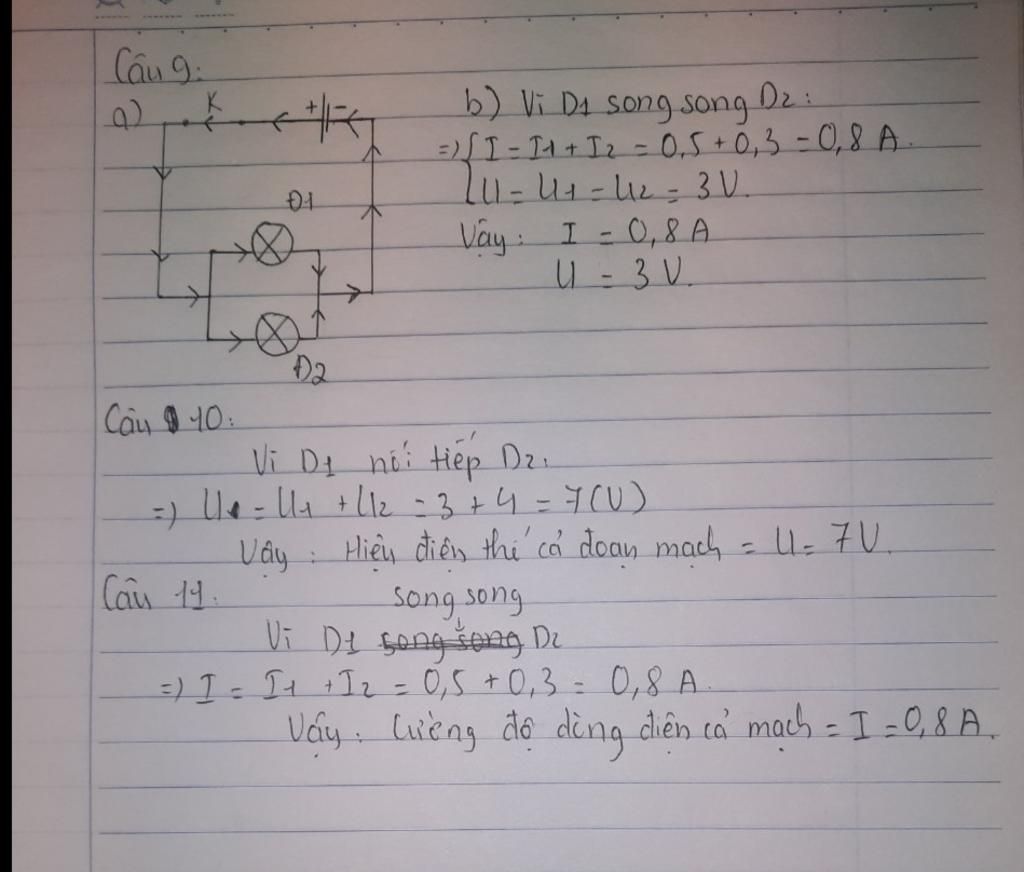 Câu 9:
a)
K
+ -
Đ1
Đ2
b) Vì Đ1 song song Đ2:
=> { I = I1 + I2 = 0,5 + 0,3 = 0,8 A.
U = U1 = U2 = 3 V.
Vậy: I = 0,8 A
U = 3 V.
Câu 10:
Vì Đ1 nối tiếp Đ2:
=> U = U1 + U2 = 3 + 4 = 7 (V)
Vậy: Hiệu điện thế cả đoạn mạch = U = 7 V.
Câu 11:
song song
Vì Đ1 song song Đ2
=> I = I1 + I2 = 0,5 + 0,3 = 0,8 A.
Vậy: Cường độ dòng điện cả mạch = I = 0,8 A.